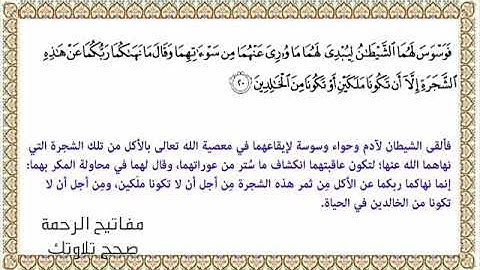 فَوَسْوَسَ لَهُمَا الشَّيْطَٰنُ لِيُبْدِيَ لَهُمَا مَا وُۥرِيَ عَنْهُمَا مِن سَوْءَٰتِهِمَا وَقَالَ مَا نَهَىٰكُمَا رَبُّكُمَا عَنْ هَٰذِهِ
الشَّجَرَةِ إِلَّآ أَن تَكُونَا مَلَكَيْنِ أَوْ تَكُونَا مِنَ الْخَٰلِدِينَ ٢٠
فألقى الشيطان لآدم وحواء وسوسة لإيقاعهما في معصية الله تعالى بالأكل من تلك الشجرة التي
نهاهما الله عنها؛ لتكون عاقبتهما انكشاف ما سُتر من عوراتهما، وقال لهما في محاولة المكر بهما:
إنما نهاكما ربكما عن الأكل مِن ثمر هذه الشجرة مِن أجل أن لا تكونا ملَكين، ومِن أجل أن لا
تكونا من الخالدين في الحياة.
مفاتيح الرحمة
صحح تلاوتك